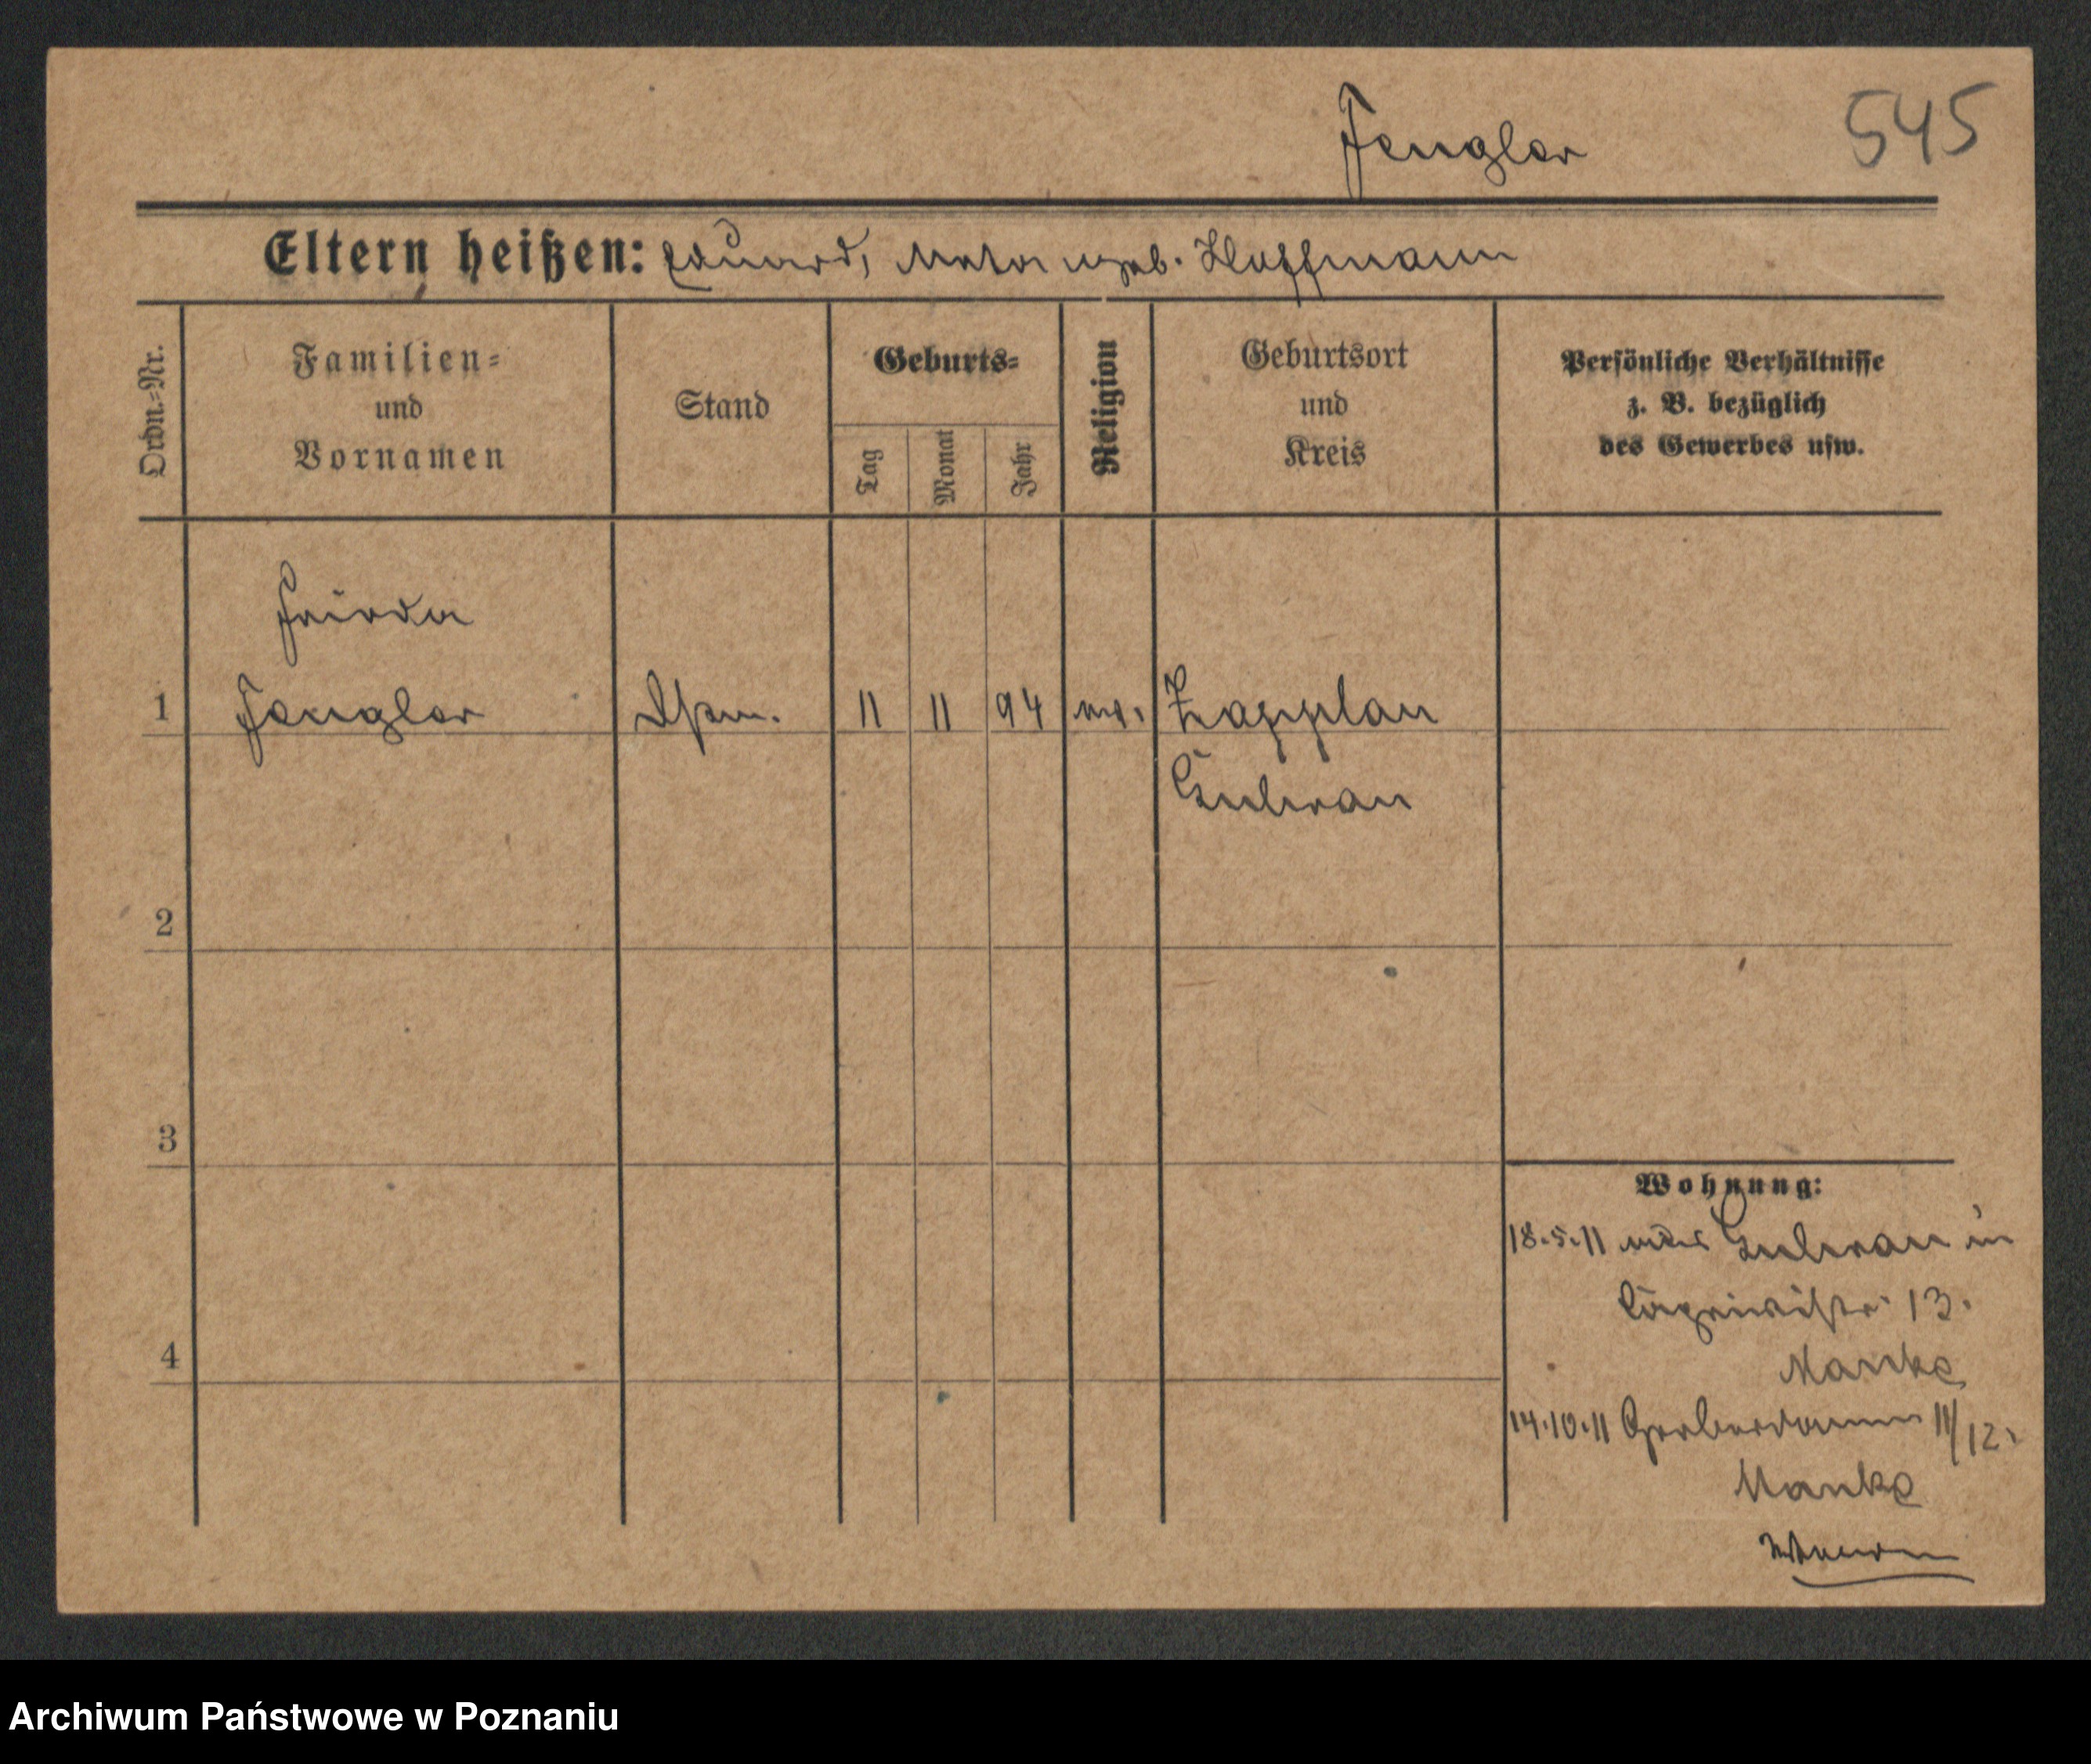 Fengler
545
Eltern heißen: Eduard, geb. Hoffmann
Ordn.=Nr.
Familien=
und
Vornamen
Stand
Geburts=
Tag
Monat
Jahr
Religion
Geburtsort
und
Kreis
Persönliche Verhältnisse
z. B. bezüglich
des Gewerbes usw.
Frieda
1 Fengler 11 11 94 ev. Zapplau
Guhrau
2
3
4
Wohnung:
18.5.11 aus Guhrau in
13.
Manke
14.10.11 Gerberdamm 11/12.
Manke
Archiwum Państwowe w Poznaniu